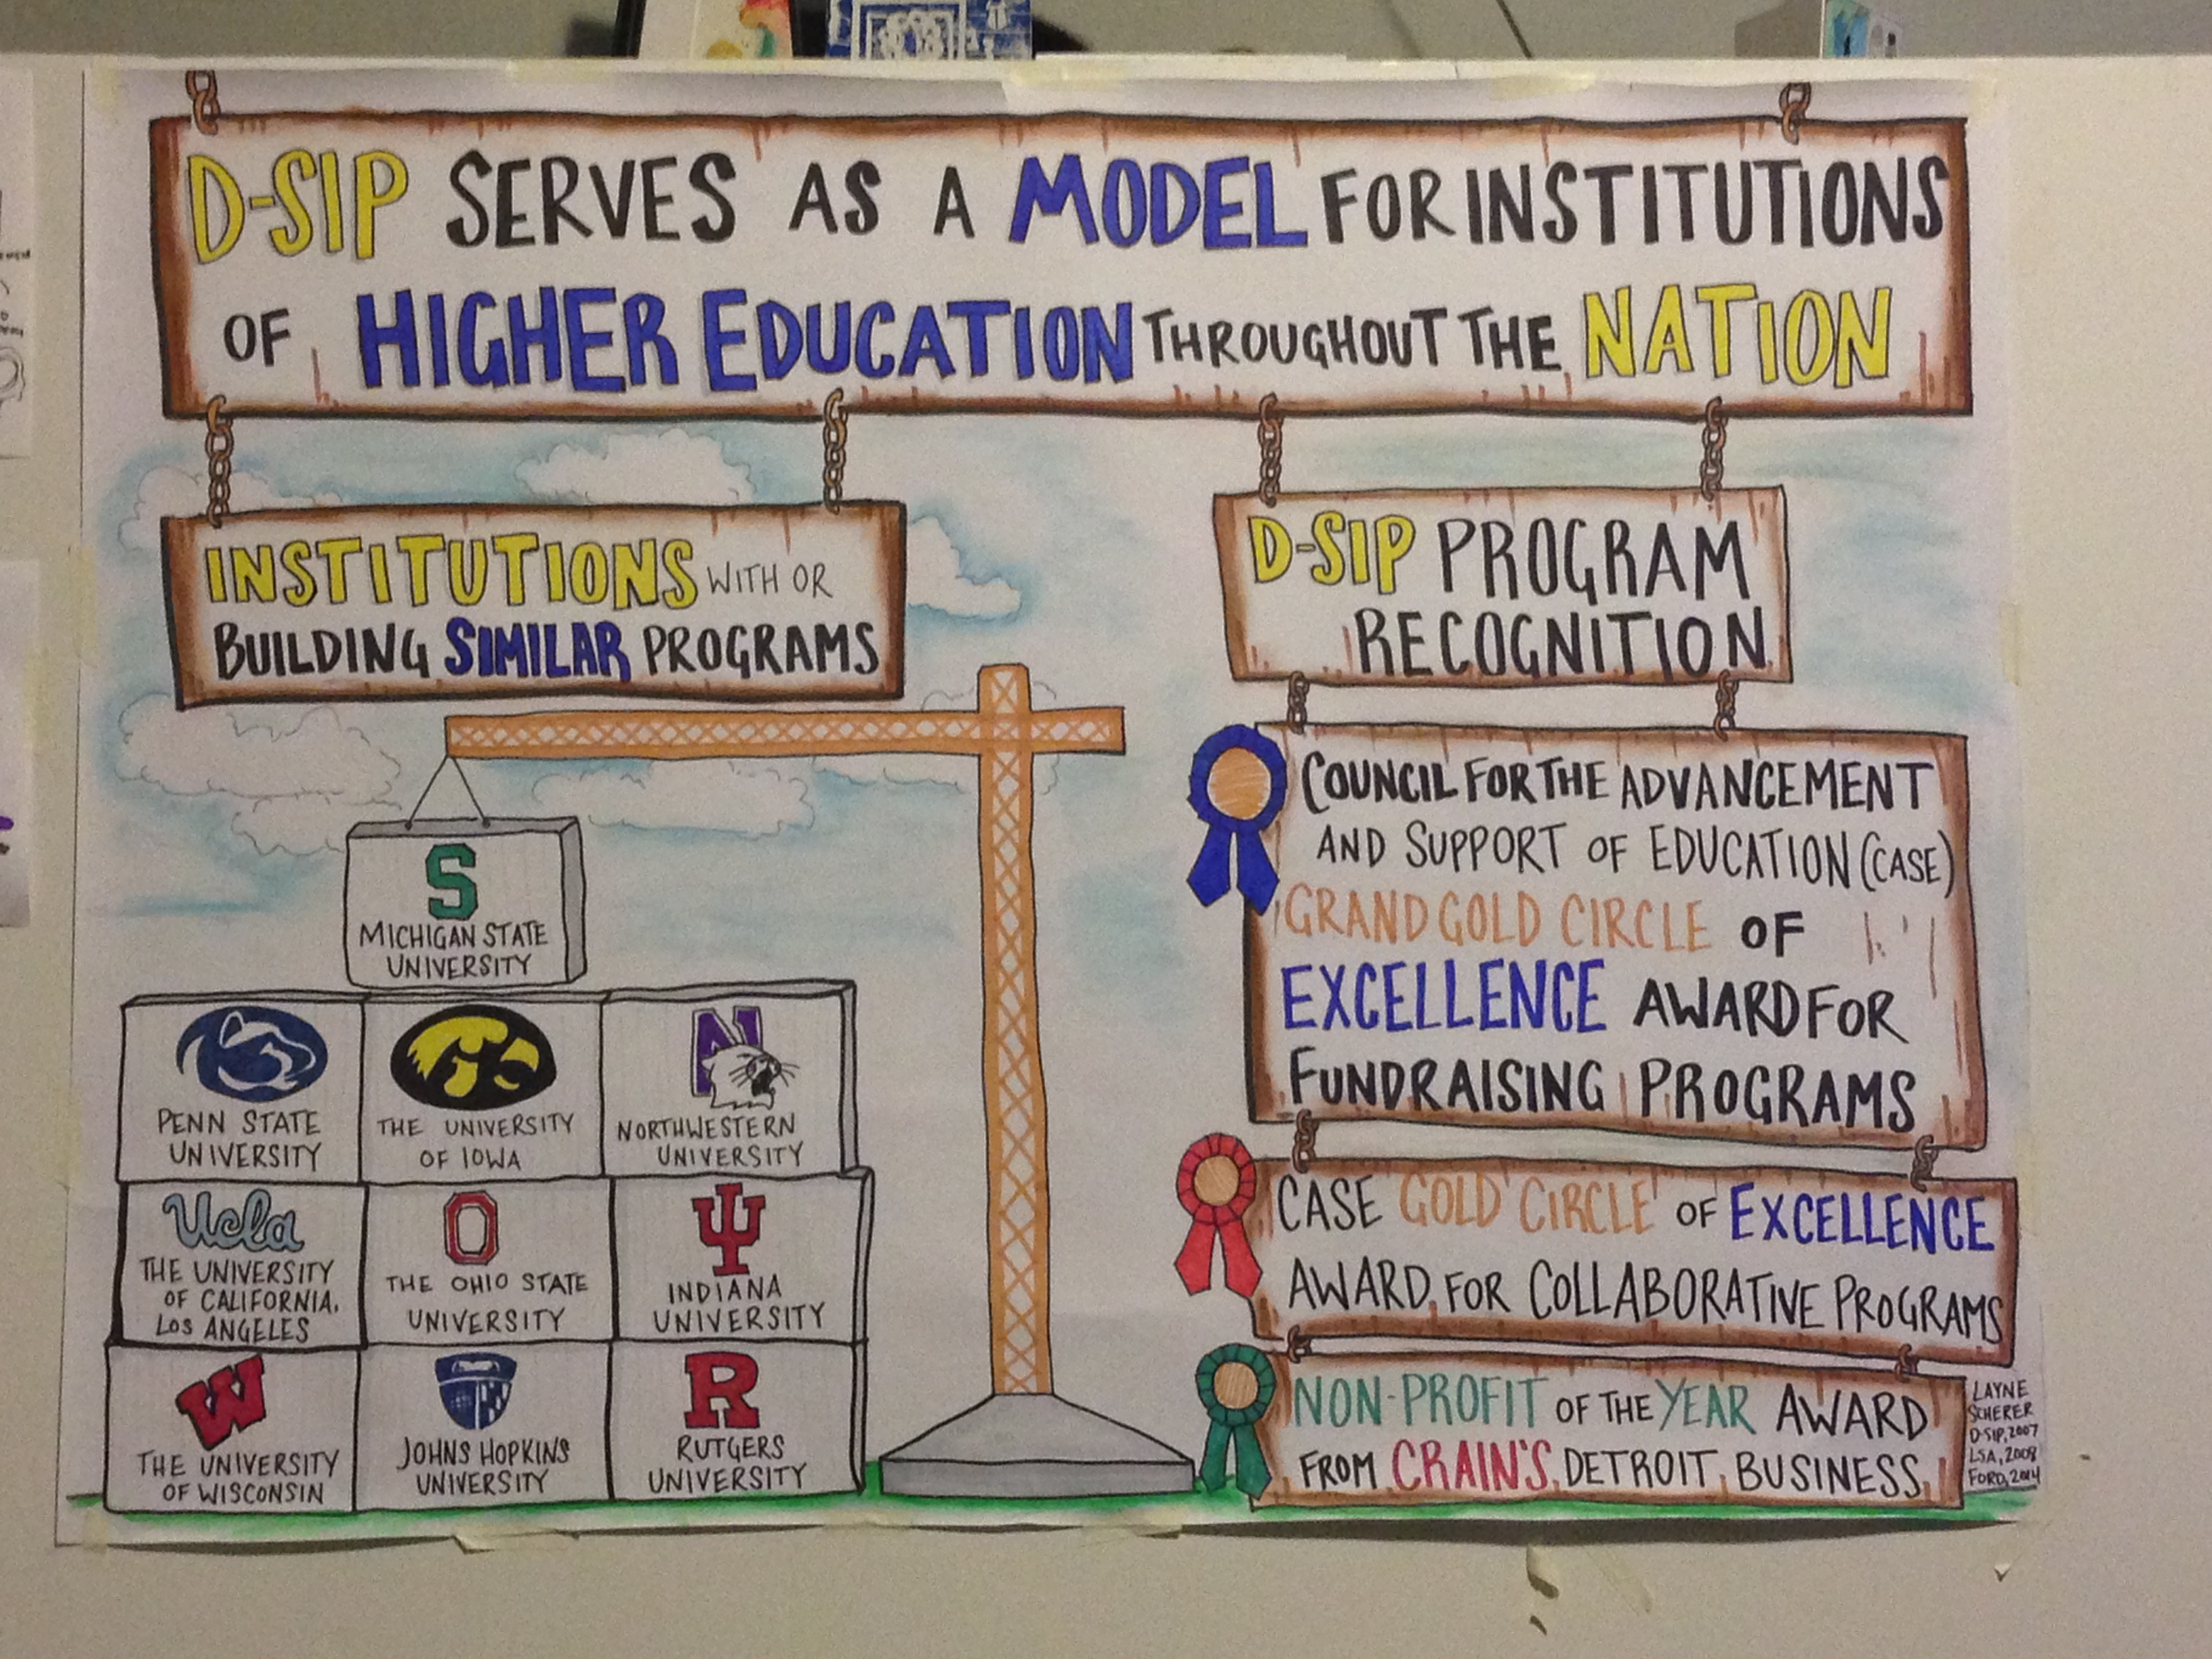 D-SIP SERVES AS A MODEL FOR INSTITUTIONS
OF HIGHER EDUCATION THROUGHOUT THE NATION
INSTITUTIONS WITH OR
BUILDING SIMILAR PROGRAMS
S
MICHIGAN STATE
UNIVERSITY
PENN STATE
UNIVERSITY
THE UNIVERSITY
OF IOWA
N
NORTHWESTERN
UNIVERSITY
Ucla
THE UNIVERSITY
OF CALIFORNIA,
LOS ANGELES
O
THE OHIO STATE
UNIVERSITY
IU
INDIANA
UNIVERSITY
W
THE UNIVERSITY
OF WISCONSIN
JOHNS HOPKINS
UNIVERSITY
R
RUTGERS
UNIVERSITY
D-SIP PROGRAM
RECOGNITION
COUNCIL FOR THE ADVANCEMENT
AND SUPPORT OF EDUCATION (CASE)
GRAND GOLD CIRCLE OF
EXCELLENCE AWARD FOR
FUNDRAISING PROGRAMS
CASE GOLD CIRCLE OF EXCELLENCE
AWARD FOR COLLABORATIVE PROGRAMS
NON-PROFIT OF THE YEAR AWARD
FROM CRAIN'S DETROIT BUSINESS
LAYNE
SCHERER
D-SIP, 2007
LSA, 2008
FORD, 2014